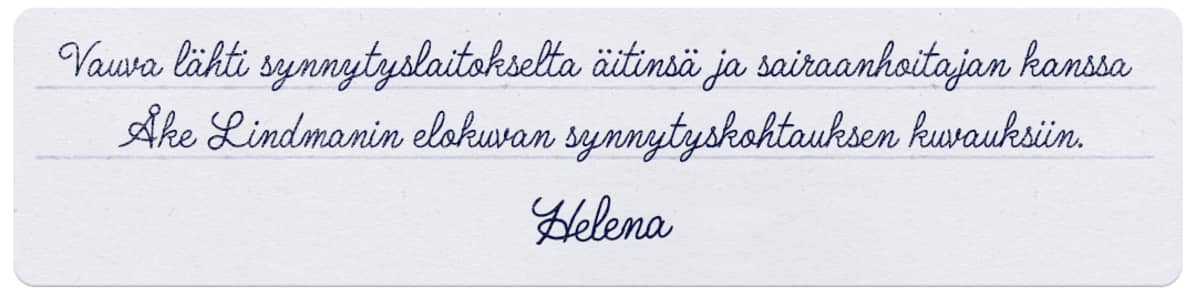 Vauva lähti synnytyslaitokselta äitinsä ja sairaanhoitajan kanssa
Åke Lindmanin elokuvan synnytyskohtauksen kuvauksiin.
Helena